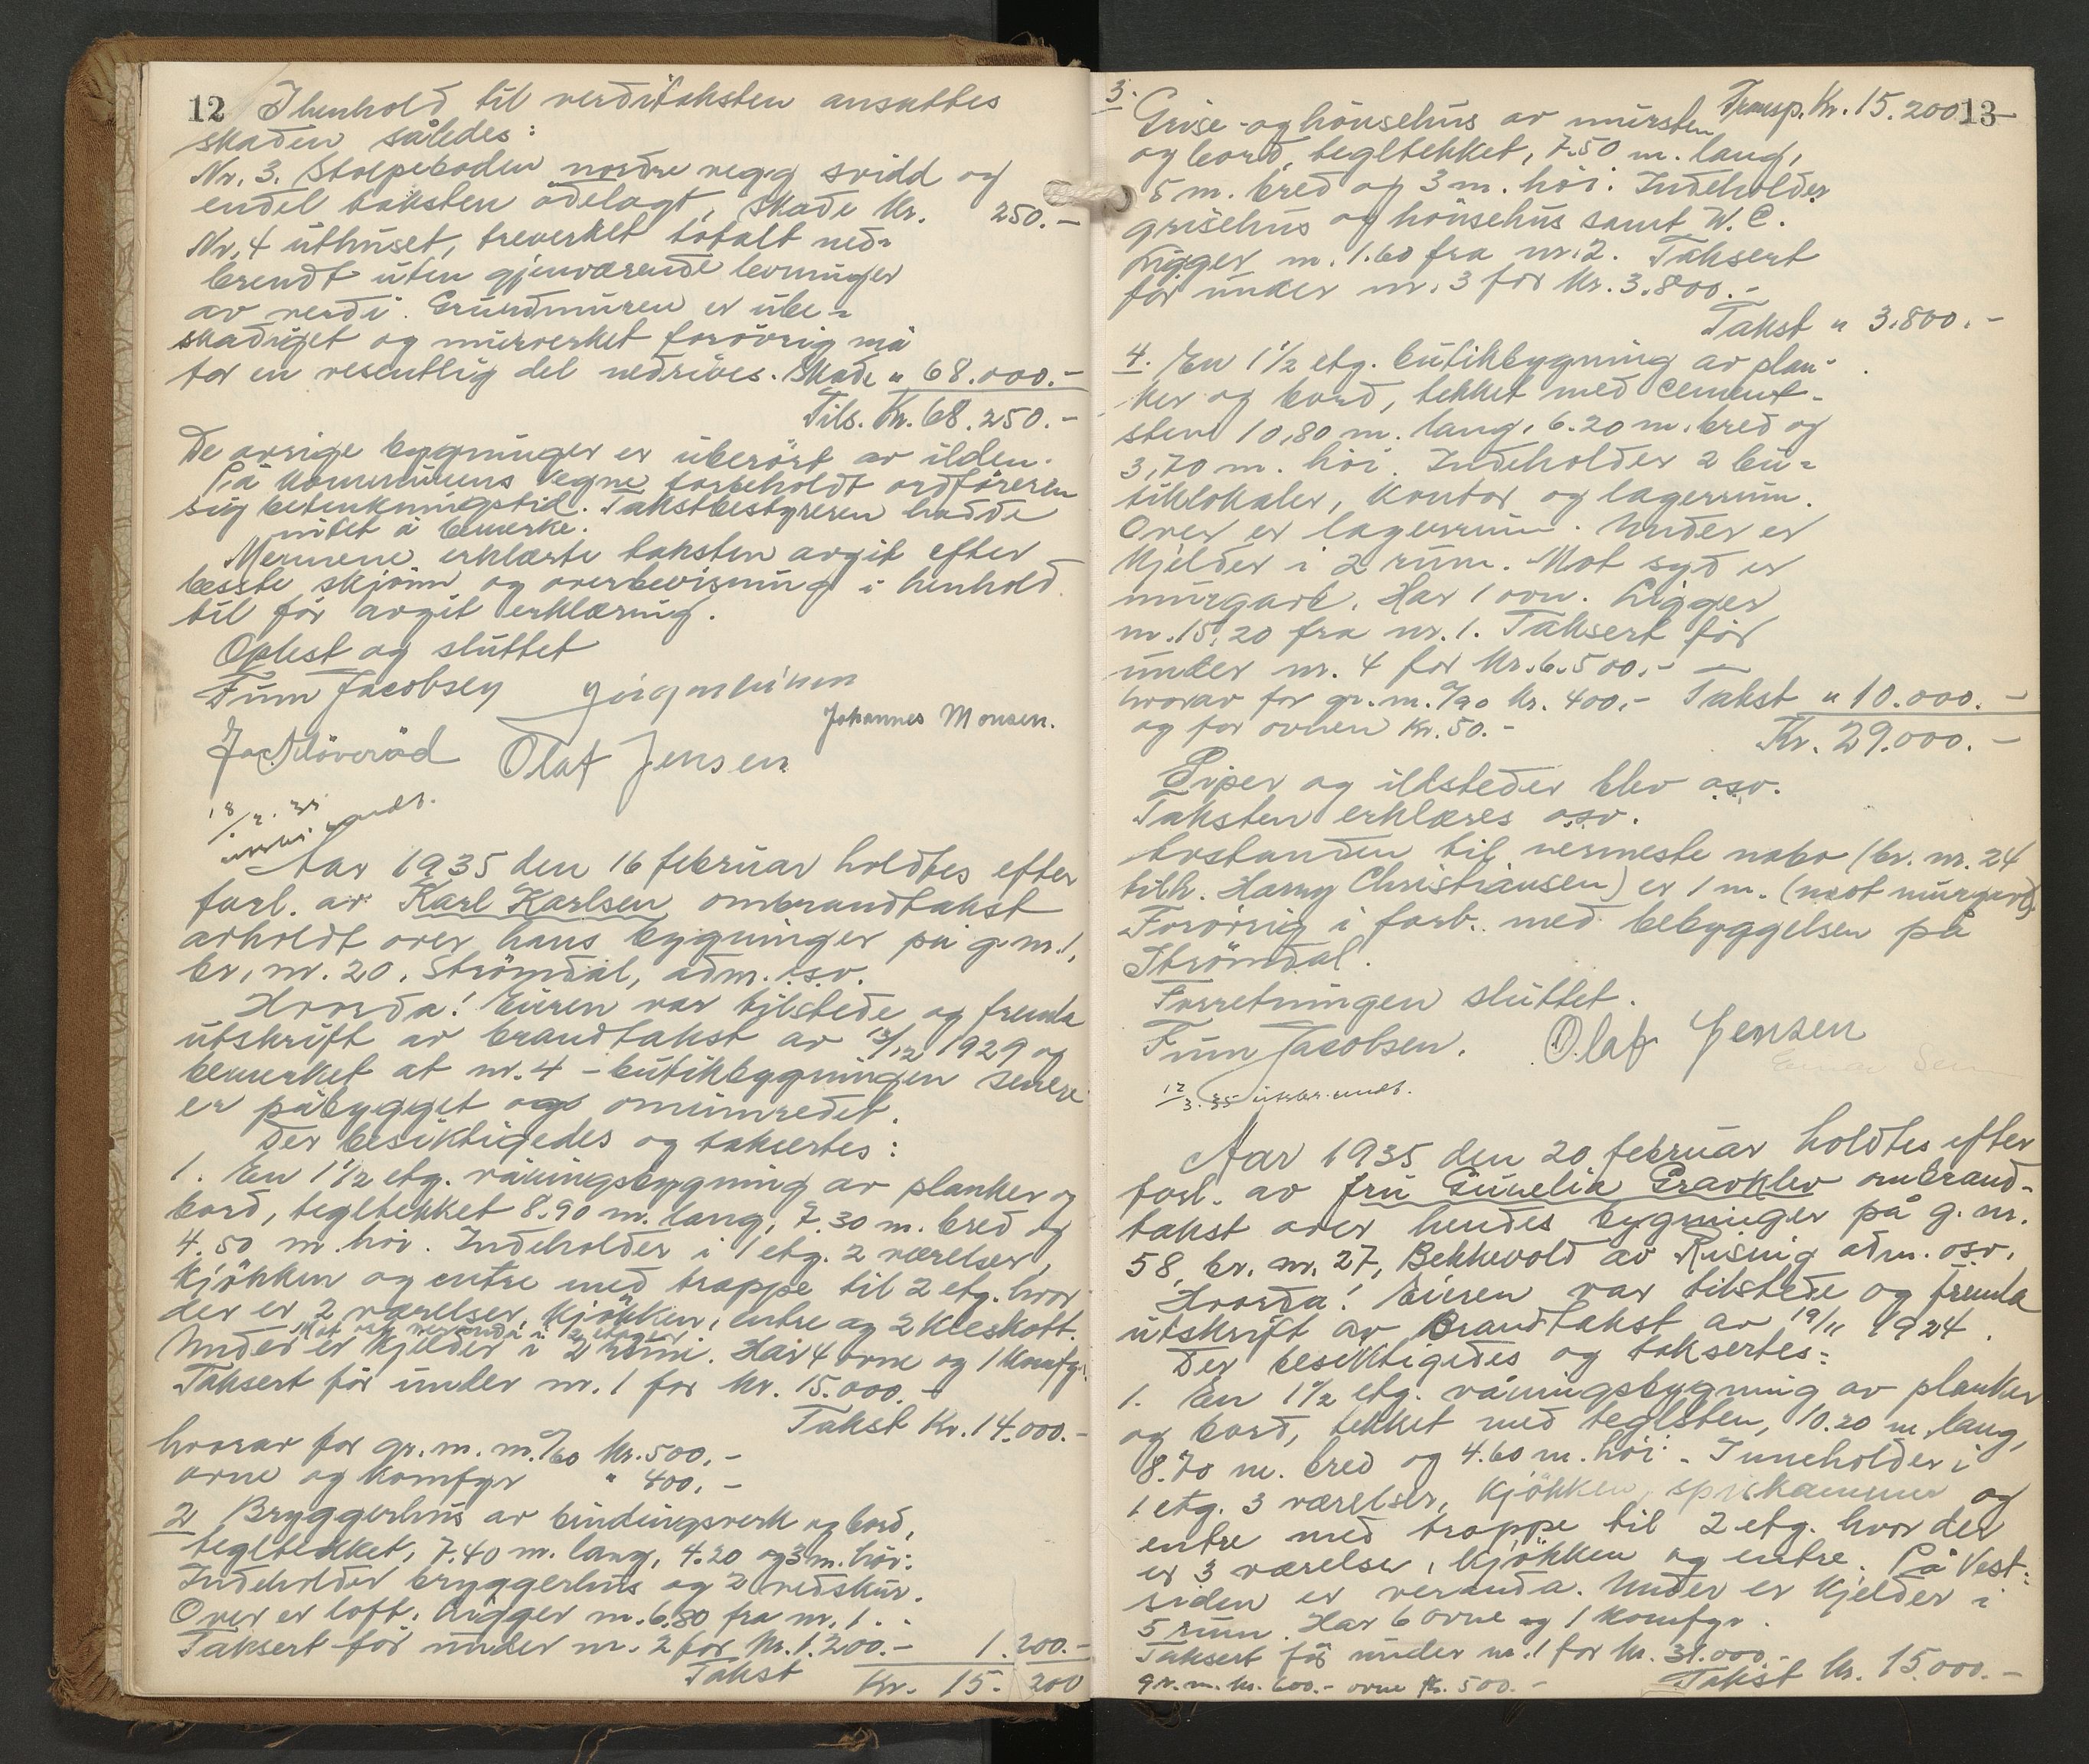 12 I henhold til verditaksten ansattes
skaden således:
Nr. 3. Stolpeboden nordre vegg svidd og
endel taksten ödelagt, skade kr. 250.-
Nr. 4 uthuset, treverket totalt ned-
brendt uten gjenværende levninger
av verdi. Grundmuren er ube-
skadiget og murverket forövrig må
for en vesentlig del nedrives. Skade " 68.000.-
Tils. Kr. 68.250.-
De övrige bygninger er uberört av ilden.
På kommunens vegne forbeholdt ordföreren
sig betenkningstid. Takstbestyreren hadde
intet å bemerke.
Mennene erklærte taksten avgit efter
besste skjönn og overbevisning i henhold
til för avgit erklæring.
Oplest og sluttet
Finn Jacobsen
Johannes Monsen.
Olaf Jensen
18/2. 35
Aar 1935 den 16 februar holdtes efter
forl. av Karl Karlsen ombrandtakst
avholdt over hans bygninger på g.nr. 1,
br. nr. 20, Strömdal, adm. osv.
Hvorda! Eieren var tilstede og fremla
utskrift av brandtakst av 12/12 1929 og
bemerket at nr. 4 - butikbygningen senere
er påbygget og ominnredet.
Der besiktigedes og taksertes:
1. En 1 1/2 etg. våningsbygning av planker og
bord, tegltekket 8.90 m. lang, 7.30 m. bred og
4.50 m. höi. Indeholder i 1 etg. 2 værelser,
kjökken og entre med trappe til 2 etg. hvor
der er 2 værelser, kjökken, entre og 2 kleskott.
Mot veranda i 2 etager
Under er kjelder i 2 rum. Har 4 ovne og 1 komfyr.
Taksert för under nr. 1 for kr. 15.000.-
Takst Kr. 14.000.-
hvorav for gr. m. m. %60 kr. 500.-
ovne og komfyr " 400.-
2 Bryggerhus av bindingsverk og bord,
tegltekket, 7.40 m. lang, 4.20 og 3 m. höi.
Indeholder bryggerhus og 2 vedskur.
Over er loft. Ligger m. 6.80 fra nr. 1.
Taksert för under nr. 2 for kr. 1.200.- 1.200.-
Takst Kr. 15.200
Transp. Kr. 15.200 13
3. Grise- og hönsehus av mursten
og bord, tegltekket, 7.50 m. lang,
5 m. bred og 3 m. höi. Indeholder
grisehus og hönsehus samt W.C.
Ligger m. 1.60 fra nr. 2. Taksert
för under nr. 3 for kr. 3.800.-
Takst " 3.800.-
4. En 1 1/2 etg. butikbygning av plan-
ker og bord, tekket med cement-
sten 10,80 m. lang, 6.20 m. bred og
3,70 m. höi. Indeholder 2 bu-
tiklokaler, kontor og lagerrum.
Over er lagerrum. Under er
kjelder i 2 rum. Mot syd er
murgavl. Har 1 ovn. Ligger
m. 15,20 fra nr. 1. Taksert för
under nr. 4 for kr. 6.500.-
hvorav for gr. m. %90 kr. 400.- Takst " 10.000.-
og for ovnen kr. 50.- Kr. 29.000.-
Piper og ildsteder blev osv.
Taksten erklæres osv.
Avstanden til nermeste nabo (br. nr. 24
tilh. Harry Christiansen) er 1 m. (mot murgavl).
Forövrig i forb. med bebyggelsen på
Strömdal.
Forretningen sluttet.
Finn Jacobsen. Olaf Jensen
12/3. 35
Aar 1935 den 20 februar holdtes efter
forl. av fru Gunelia Gravklev ombrand-
takst over hendes bygninger på g. nr.
58, br. nr. 27, Bekkevold av Rising adm. osv.
Hvorda! Eieren var tilstede og fremla
utskrift av brandtakst av 19/11 1924.
Der besiktigedes og taksertes:
1. En 1 1/2 etg. våningsbygning av planker
og bord, tekket med teglsten, 10.20 m. lang,
8.70 m. bred og 4.60 m. höi. Inneholder i
1 etg. 3 værelser, kjökken, spiskammer og
entre med trappe til 2 etg. hvor der
er 3 værelser, kjökken og entre. På vest-
siden er veranda. Under er kjelder i
5 rum. Har 6 ovne og 1 komfyr.
Taksert för under nr. 1 for kr. 31.000.-
gr. m. kr. 600.- ovne kr. 500.- Takst kr. 15.000.-